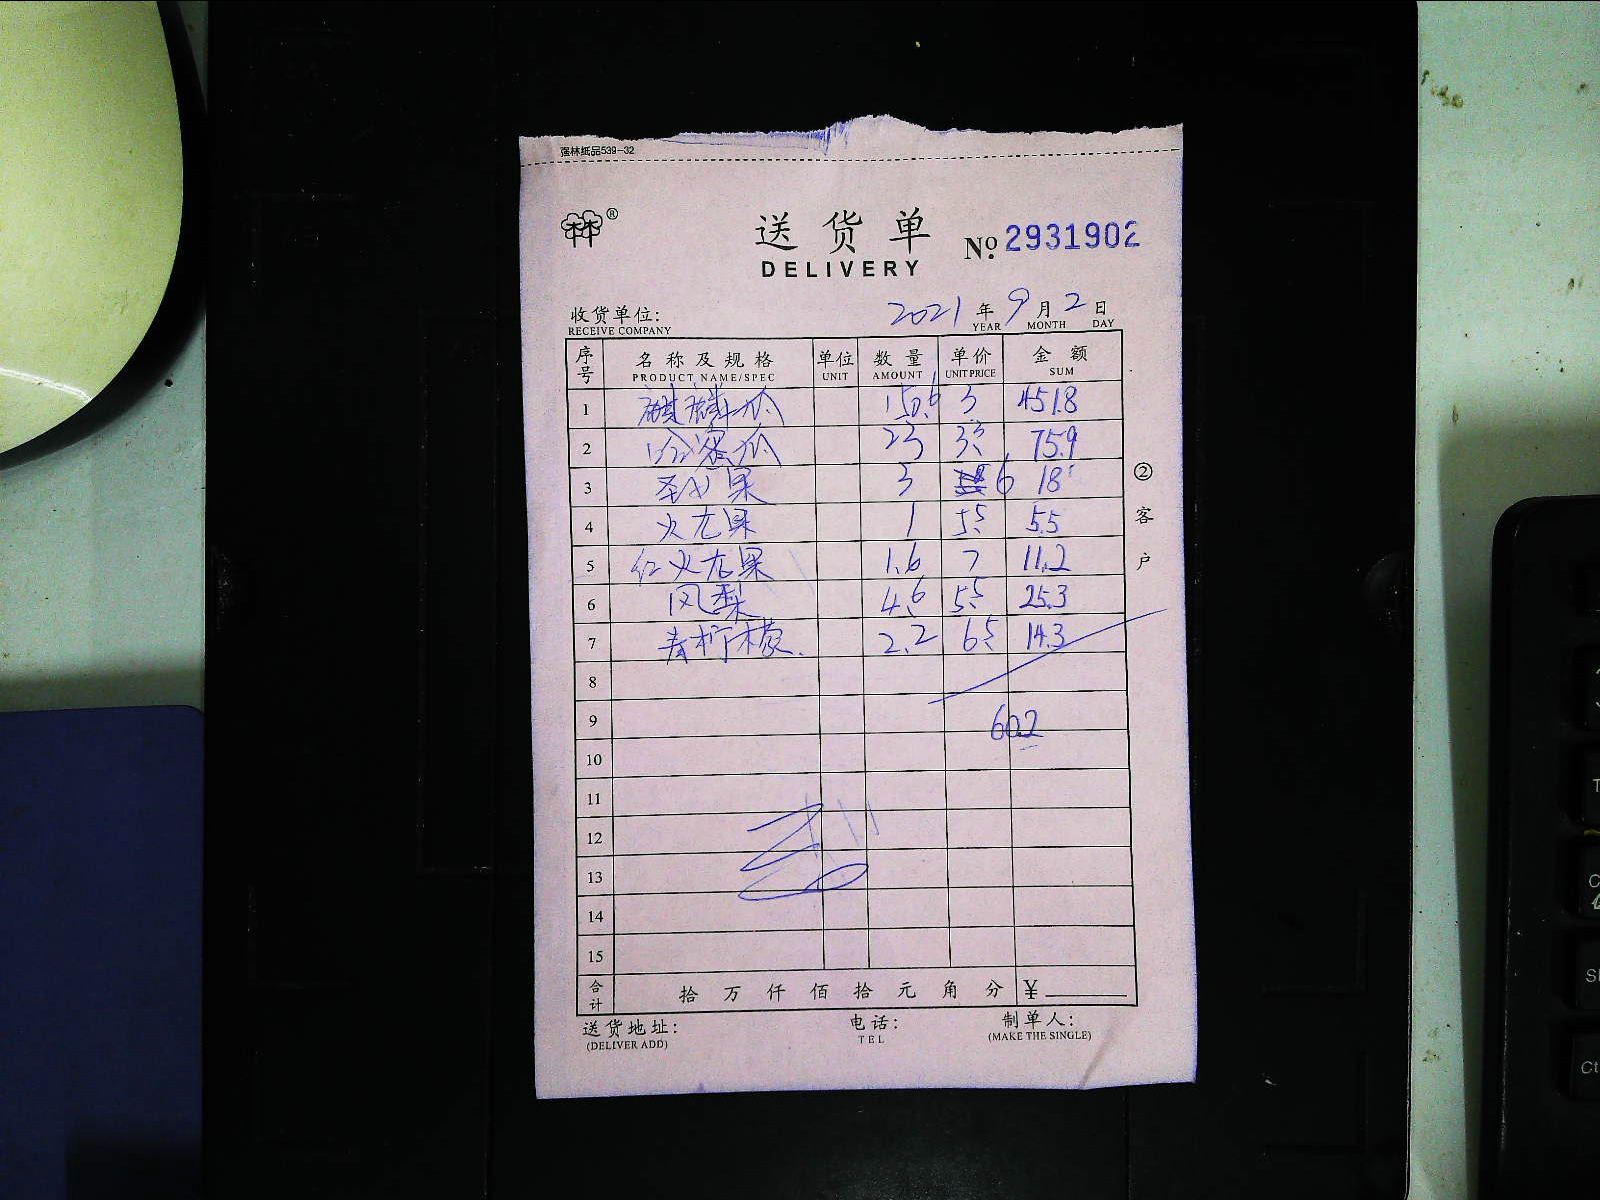 强林纸品539-32
林®
送货单
DELIVERY
No. 2931902
收货单位:
RECEIVE COMPANY
2021 年 9 月 2 日
YEAR MONTH DAY
序号 名称及规格 单位 数量 单价 金额
PRODUCT NAME/SPEC UNIT AMOUNT UNIT PRICE SUM
1 麒麟瓜 150.6 3 451.8
2 哈密瓜 23 3.3 75.9
3 圣女果 3 6 18
4 火龙果 1 5.5 5.5
5 红火龙果 1.6 7 11.2
6 凤梨 4.6 5.5 25.3
7 青柠檬. 2.2 6.5 14.3
8
9 602
10
11
12
13
14
15
合计 拾 万 仟 佰 拾 元 角 分 ¥
送货地址: 电话: 制单人:
(DELIVER ADD) TEL (MAKE THE SINGLE)
②客户